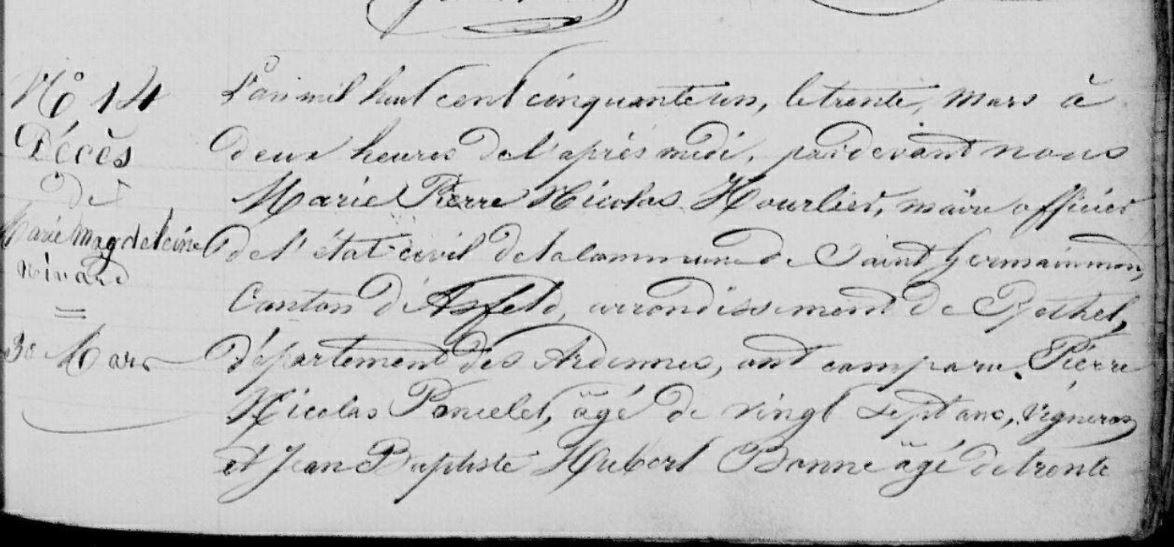 N° 14
Décès
de
Marie Magdeleine
Nivard
=
30 Mars
L'an mil huit cent cinquante un, le trente, mars à
deux heures de l'après midi, pardevant nous
Marie Pierre Nicolas Hourlier, maire officier
de l'état civil de la commune de Saint Germainmont,
Canton d'Asfeld, arrondissement de Rethel,
département des Ardennes, ont comparu Pierre
Nicolas Poncelet, âgé de vingt sept ans, Vigneron
et Jean Baptiste Hubert Bonne âgé de trente